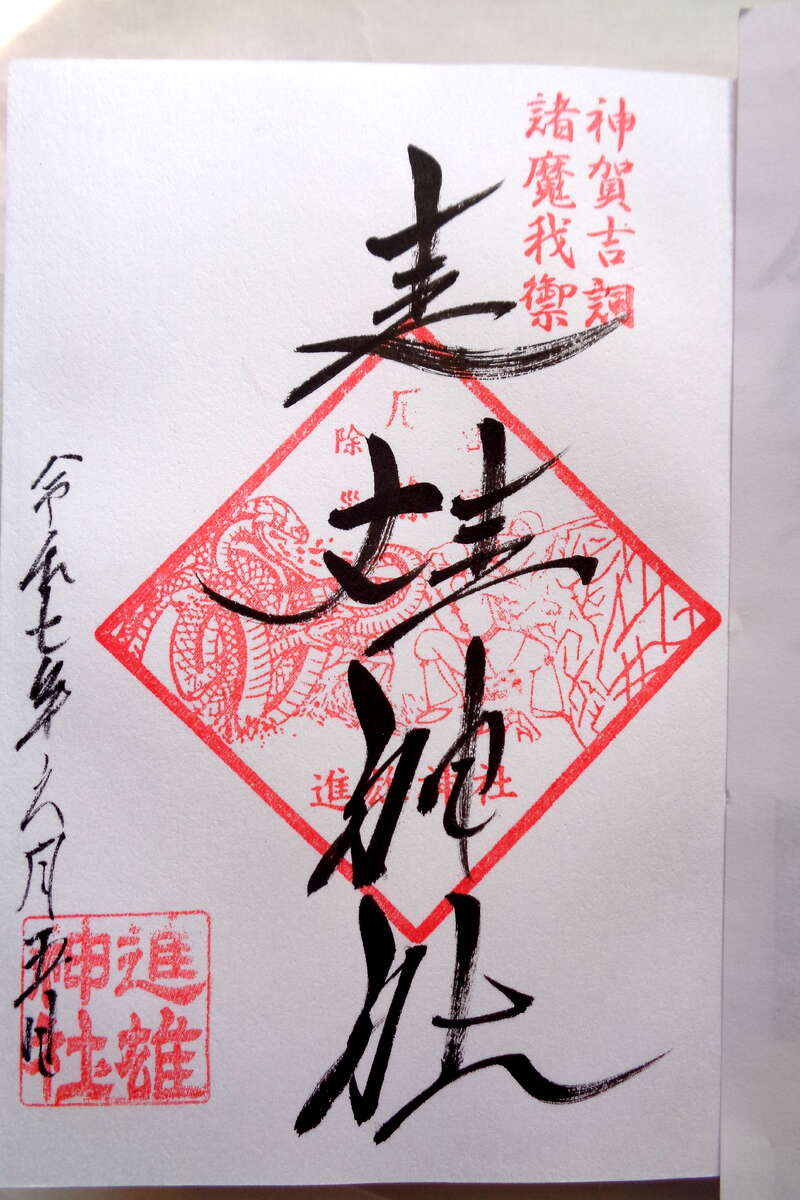 神賀吉詞
諸魔我禦
進雄神社
除
進雄神社
令和七年六月五日
進雄
神社